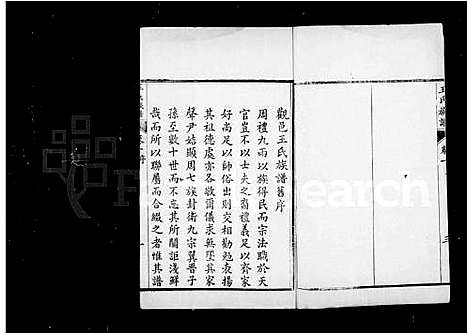 王氏族譜
卷一
三
觀邑王氏族譜舊序
周禮九兩以族得民而宗法職於天
官豈不以士夫之裔禮義足以齊家
好尚足以師俗出則交相勸勉表揚
其祖德處亦各敬爾儀求無墜其家
聲尹姞顯周七族封衛九宗冀晉子
孫至數十世而不忘其所關詎淺鮮
矣所以聯屬而合綴之者惟其譜
Research